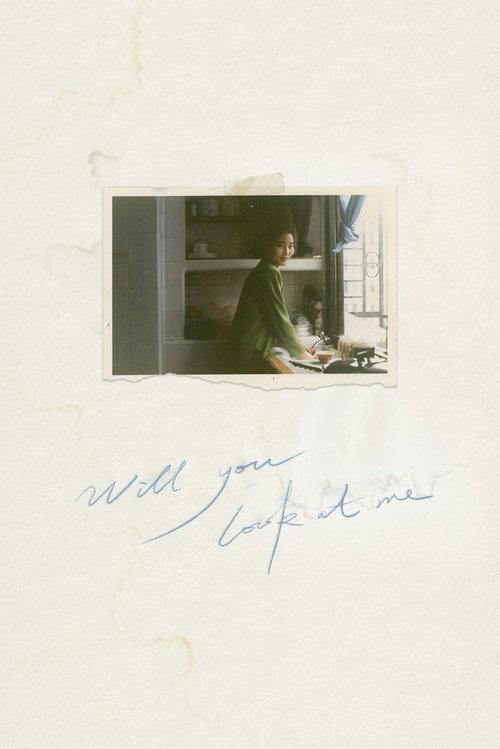 Will you
look at me